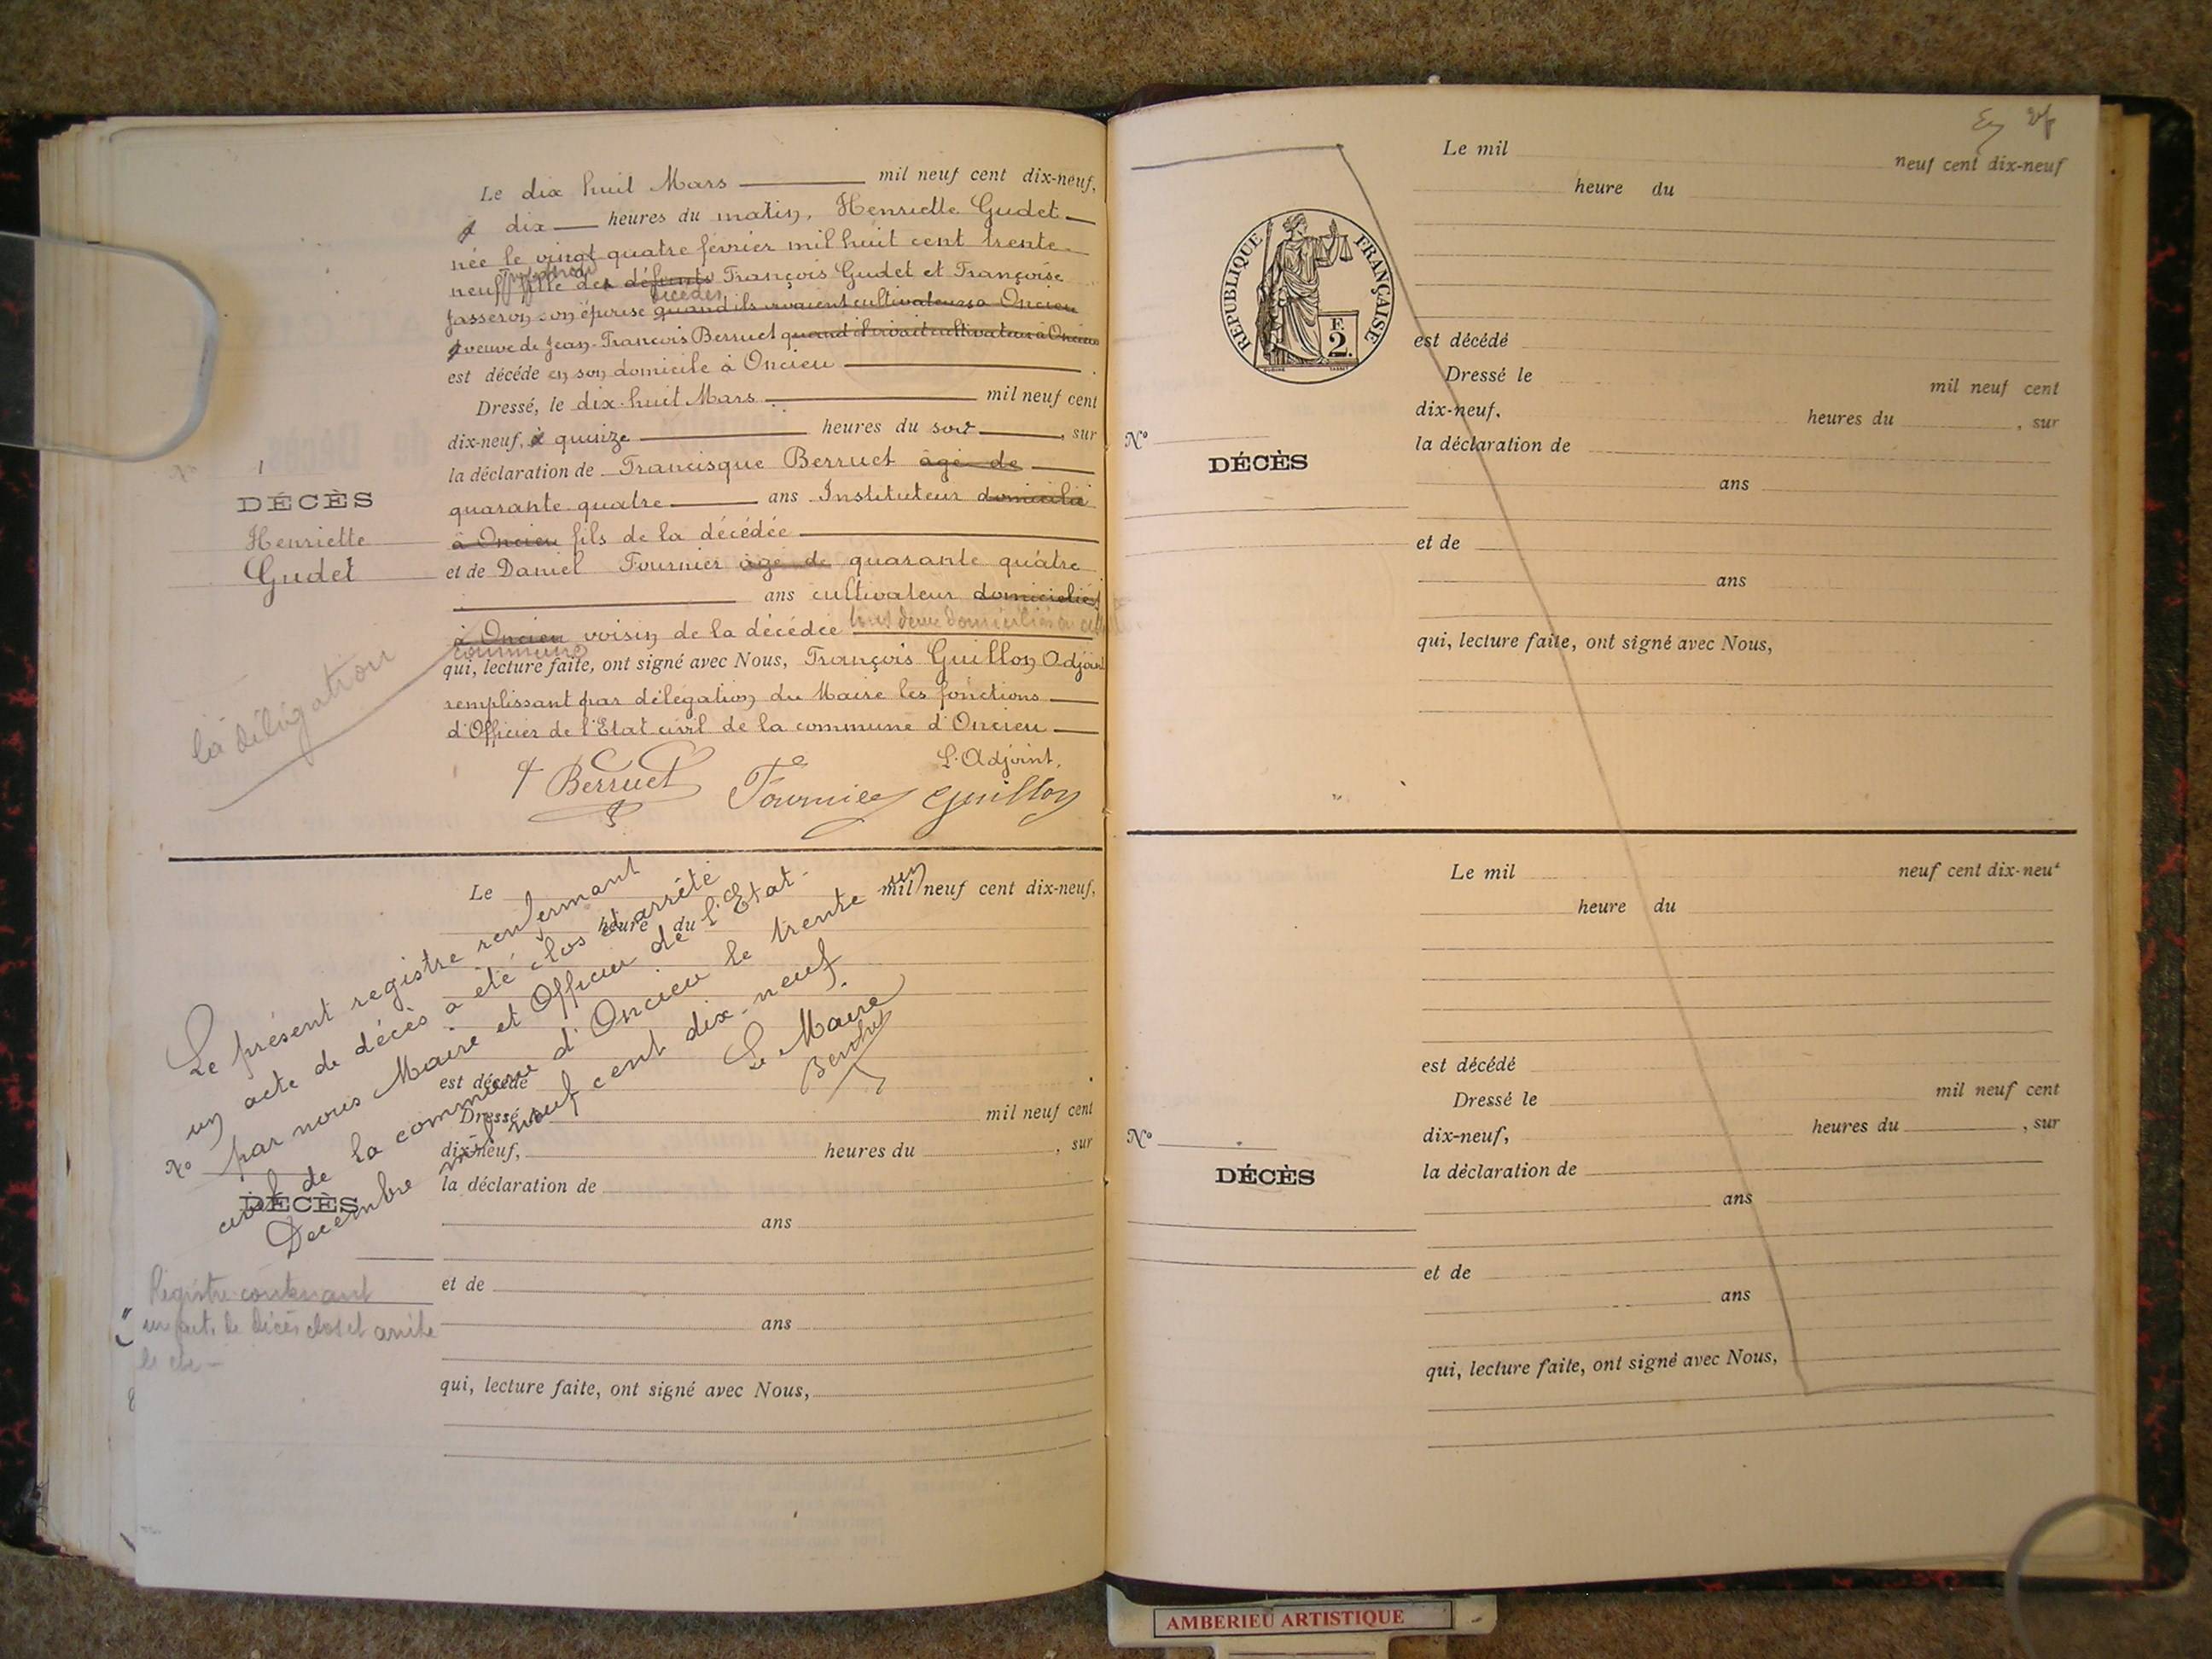 Le dix huit Mars mil neuf cent dix-neuf,
à dix heures du matin, Henriette Gudet
née le vingt quatre fevrier mil huit cent trente
neuf fille des défunts François Gudet et Françoise
décédés
Jasseron son épouse quand ils vivaient cultivateurs a Oncieu
veuve de Jean-Francois Berruet quand il vivait cultivateur à Oncieu
est décédé en son domicile à Oncieu
Dressé, le dix-huit Mars mil neuf cent
dix-neuf, à quinze heures du soir, sur
la déclaration de Francisque Berruet âgé de
quarante quatre ans Instituteur domicilié
à Oncieu fils de la décédée
et de Daniel Fournier âgé de quarante quatre
ans cultivateur domiciliés
à Oncieu voisin de la décédée tous deux domiciliés en cette
commune
qui, lecture faite, ont signé avec Nous, François Guillon Adjoint
remplissant par délégation du Maire les fonctions
d'Officier de l'Etat civil de la commune d'Oncieu
L'Adjoint,
Berruet Fournier Guillon
1
DÉCÈS
Henriette
Gudet
la délégation
Le mil neuf cent dix-neuf,
heure du
est décédé
Dressé le mil neuf cent
dix-neuf, heures du , sur
la déclaration de
ans
et de
ans
qui, lecture faite, ont signé avec Nous,
Nº
DÉCÈS
Le présent registre renfermant
un acte de décès a été clos et arrêté
par nous Maire et Officier de l'Etat-
civil de la commune d'Oncieu le trente un
Décembre mil neuf cent dix-neuf.
Le Maire
Registre contenant
un acte de décès clos et arrêté
Le mil neuf cent dix-neuf
heure du
REPUBLIQUE FRANÇAISE
F
2.
est décédé
Dressé le mil neuf cent
dix-neuf, heures du , sur
la déclaration de
ans
et de
ans
qui, lecture faite, ont signé avec Nous,
Nº
DÉCÈS
Le mil neuf cent dix-neuf
heure du
est décédé
Dressé le mil neuf cent
dix-neuf, heures du , sur
la déclaration de
ans
et de
ans
qui, lecture faite, ont signé avec Nous,
Nº
DÉCÈS
AMBERIEU ARTISTIQUE